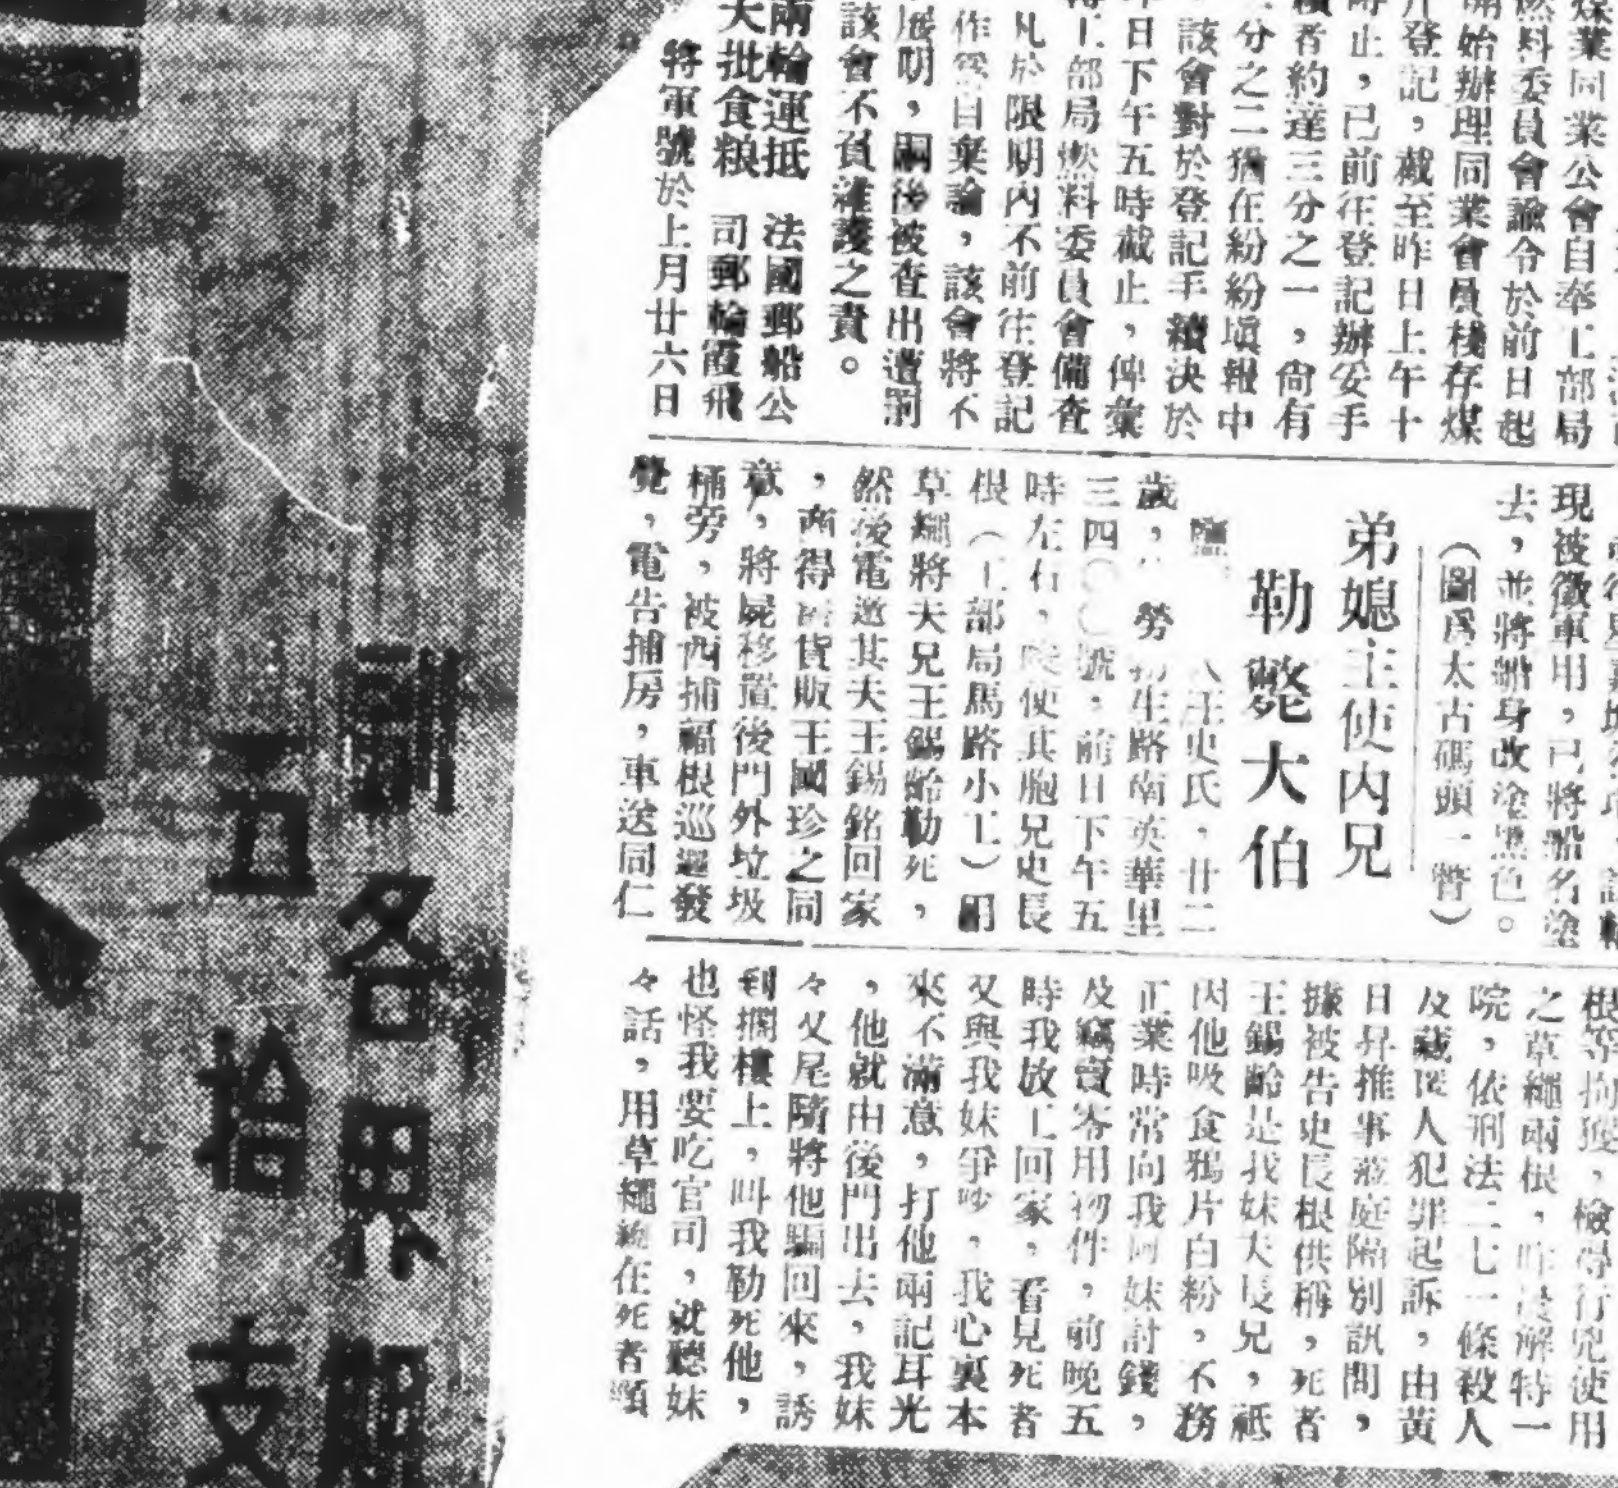 煤業同業公會自奉工部局
燃料委員會諭令於前日起
開始辦理同業會員棧存煤
登記，截至昨日上午十
時止，已前往登記辦妥手
續者約達三分之一，尙有
分之二猶在紛紛塡報中
該會對於登記手續決於
昨日下午五時截止，俾彙
工部局燃料委員會備查
凡於限期內不前往登記
作爲自棄論，該會將不
展期，嗣後被查出遭罰
該會不負維護之責。
兩輪運抵
大批食粮
法國郵船公
司郵輪霞飛
將軍號於上月廿六日
現被徵軍用，已將船名塗
去，並將船身改塗黑色。
（圖爲太古碼頭一瞥）
弟媳主使內兄
勒斃大伯
王史氏，廿二
歲，勞生路南英華里
三四〇〇號，前日下午五
時左右，使其胞兄史長
根（工部局馬路小工）用
草繩將夫兄王錫齡勒死，
然後電邀其夫王錫銘回家
，商得貨販王國珍之同
意，將屍移置後門外垃圾
桶旁，被西捕福根巡邏發
覺，電告捕房，車送同仁
根等拘獲，檢得行兇使用
之草繩兩根，昨晨解特一
院，依刑法二七一條殺人
及藏匿人犯罪起訴，由黃
日昇推事蒞庭隔別訊問，
據被告史長根供稱，死者
王錫齡是我妹夫長兄，祗
因他吸食鴉片白粉，不務
正業時常向我同妹討錢，
及竊賣零用物件，前晚五
時我放工回家，看見死者
又與我妹爭吵，我心裏本
來不滿意，打他兩記耳光
，他就由後門出去，我妹
々又尾隨將他騙回來，誘
到擱樓上，叫我勒死他，
也怪我要吃官司，就聽妹
々話，用草繩繞在死者頸
五拾支